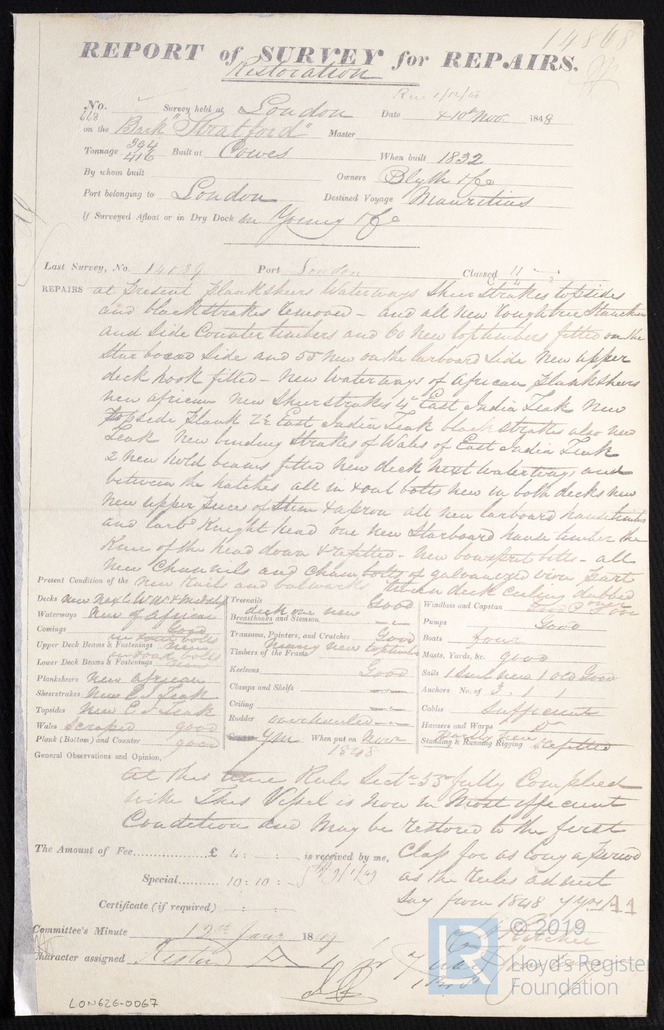 14868
REPORT of SURVEY for REPAIRS.
Restoration
No. 113 Survey held at London Date 4 10th Nov. 1848
on the Bark "Stratford" Master
Tonnage 394 416 Built at Cowes When built 1832
By whom built Owners Blyth & Co
Port belonging to London Destined Voyage Mauritius
If Surveyed Afloat or in Dry Dock in Young & Co
Last Survey, No. 14089 Port London Classed
REPAIRS at Present Planksheers Waterways Sheerstrakes topsides
and blackstrakes removed - and all new Roughtree Stanchions
and Side Counter timbers and 60 new toptimbers fitted on the
Starboard Side and 55 new on the larboard Side New upper
deck hook fitted - New Waterways of African Planksheers
new African New Sheerstrakes 4 in East India Teak New
topside Plank 2½ East India Teak black Strakes also new
Teak New binding Strakes of Wales of East India Teak
2 New hold beams fitted New deck next waterways and
between the hatches all in & out bolts new in both decks new
New upper pieces of Stem & apron all new larboard hawse timbers
and larbd Knight head one new Starboard hawse timber the
Knee of the head down & refitted - New bowsprit bitts - all
New Channels and Chain bolts of galvanized iron Part
new Rails and bulwarks
Present Condition of the
Decks new next W.W. & Midship
Waterways New of African
Comings Good
Upper Deck Beams & Fastenings in & out bolts new
Lower Deck Beams & Fastenings in & out bolts
Planksheers New African
Sheerstrakes New E I Teak
Topsides New E I Teak
Wales Scraped good
Plank (Bottom) and Counter good
Treenails Good
Breasthooks and Stemson deck one new
Transoms, Pointers, and Crutches Good
Timbers of the Frame Many new toptimbers
Keelsons Good
Clamps and Shelfs
Ceiling
Rudder overhauled
YM When put on Nov 1848
Windlass and Capstan
Pumps Good
Boats Four
Masts, Yards, &c. good
Sails 1 Suit new 1 old Good
Anchors No. of 3. 1 1
Cables Sufficient
Hawsers and Warps
Standing & Running Rigging refitted
General Observations and Opinion,
At this time Rule Sectn 55 fully Complied
with This Vessel is now in Most efficient
Condition and May be restored to the first
Class for as long a Period
as the Rules admit
Say from 1848 7 yrs A 1
The Amount of Fee £ 4 : : is received by me,
Special 10 : 10 :
Certificate (if required) : :
Committee's Minute 12th Jany 1849
Character assigned Restd A
LON626-0067
© 2019
Lloyd's Register
Foundation
LR